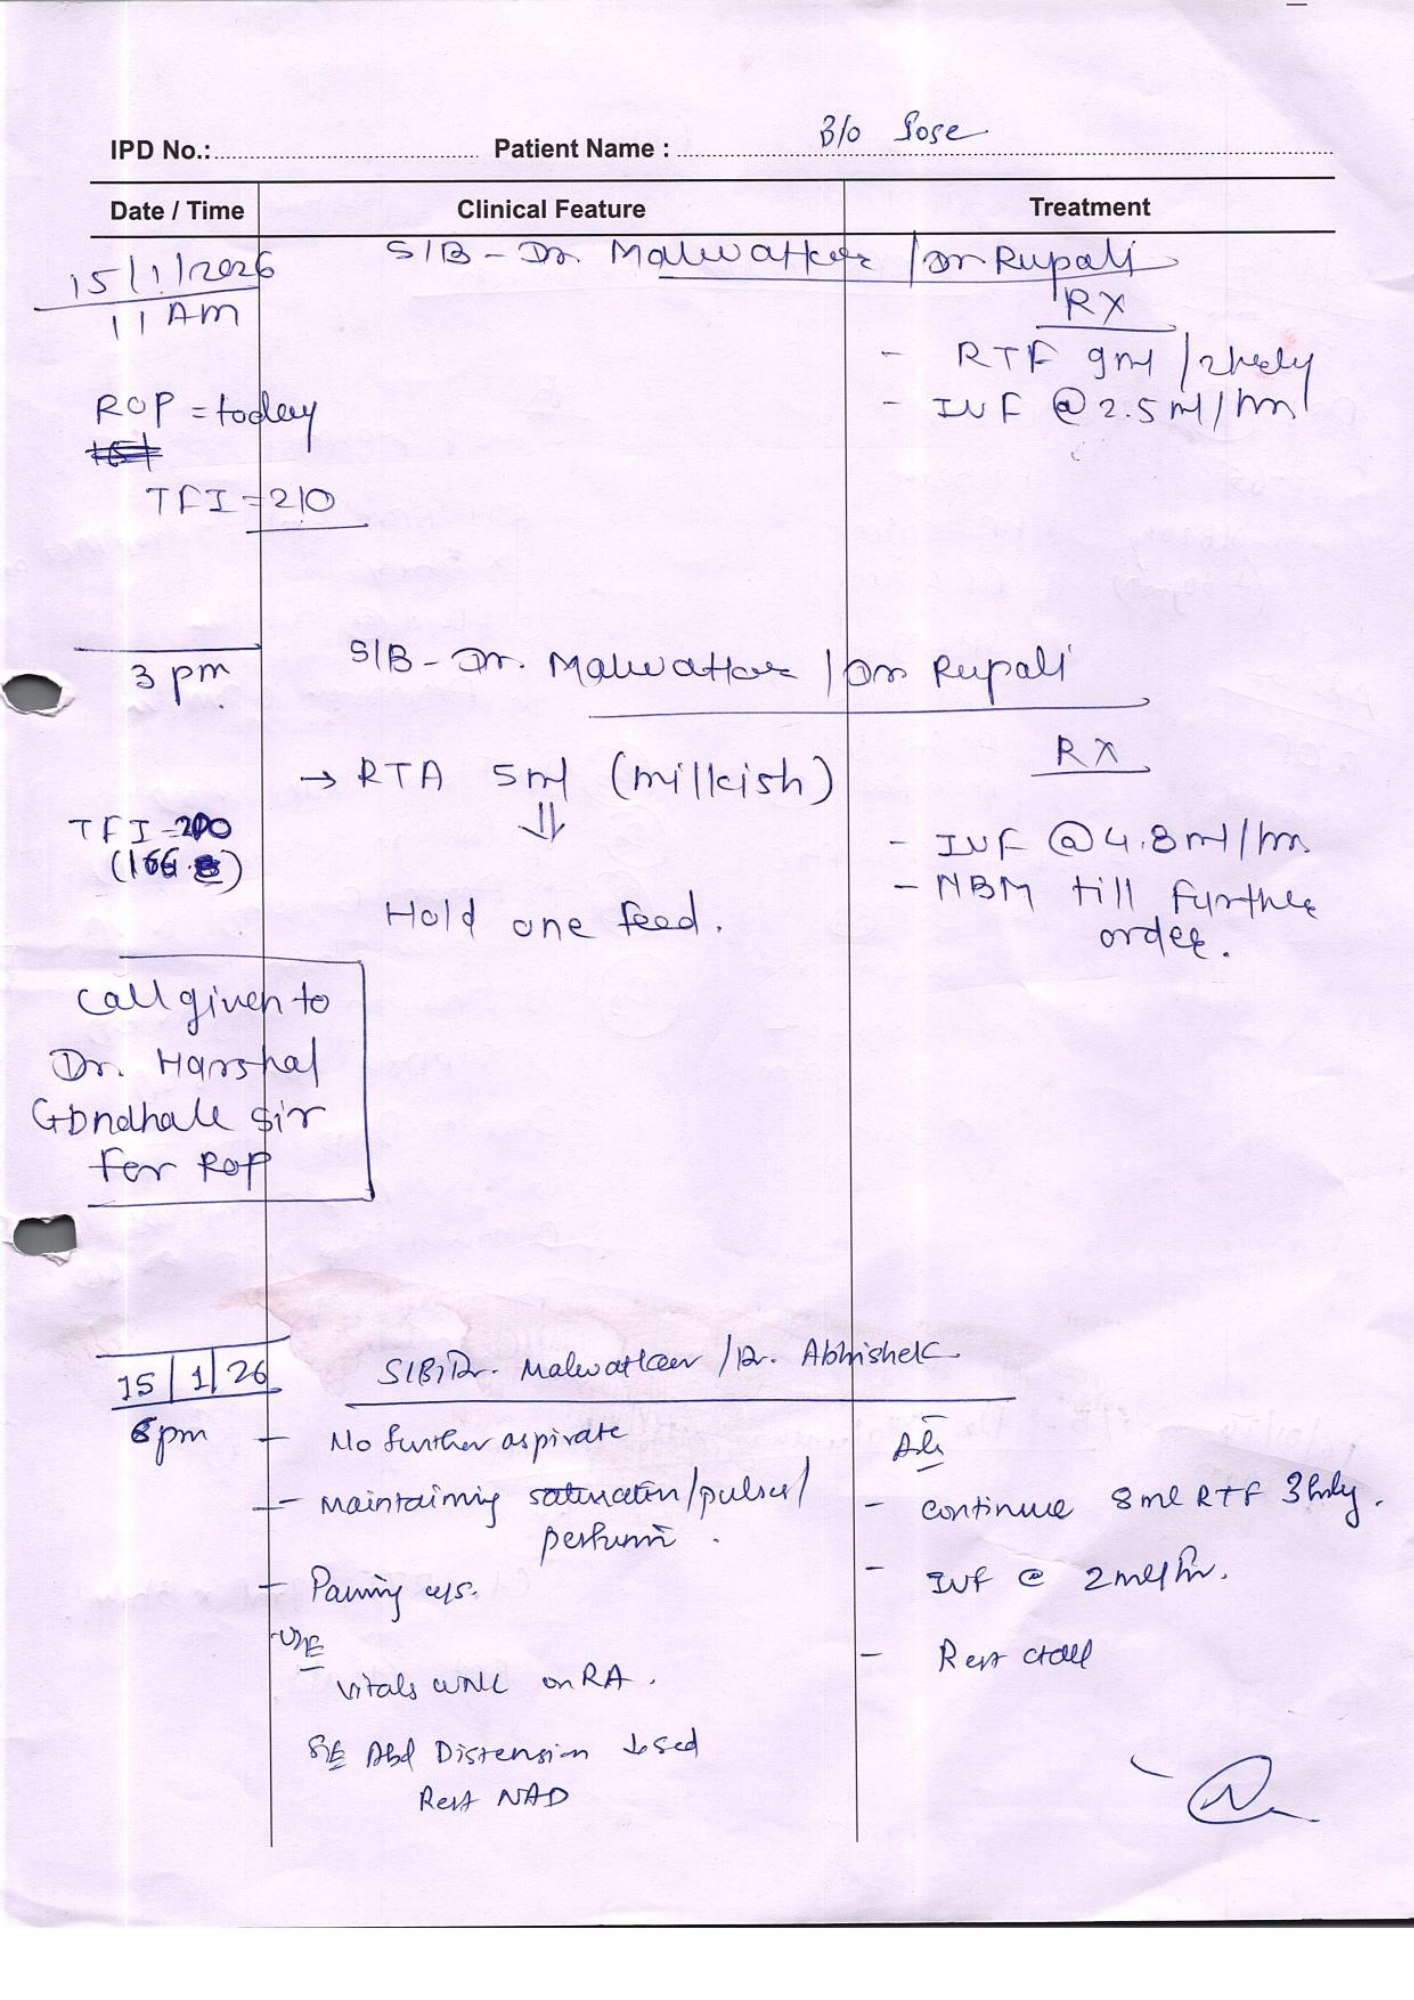 IPD No.: Patient Name : B/o Sose
Date / Time Clinical Feature Treatment
15/1/2026 S/B - Dr. Malwatkar / Dr Rupali
11 AM RX
- RTF 9ml / 2hrly
ROP = today - IVF @ 2.5 ml/hr
TFI = 210
3 pm S/B - Dr. Malwatkar / Dr Rupali
RX
→ RTA 5ml (milkish)
⇓
TFI - - IVF @ 4.8 ml/hr
(166. ) - NBM till further
Hold one feed. order.
Call given to
Dr. Harshal
Gondhale sir
for ROP
15/1/26 S/B Dr. Malwatkar / Dr. Abhishek
6pm - No further aspirate Adv
- Maintaining saturation/pulses/ - continue 8ml RTF 3hrly.
perfusion.
- Passing u/s. - IVF @ 2ml/hr.
O/E
Vitals WNL on RA. - Rest CTall
S/E Abd Distension ↓sed
Rest NAD